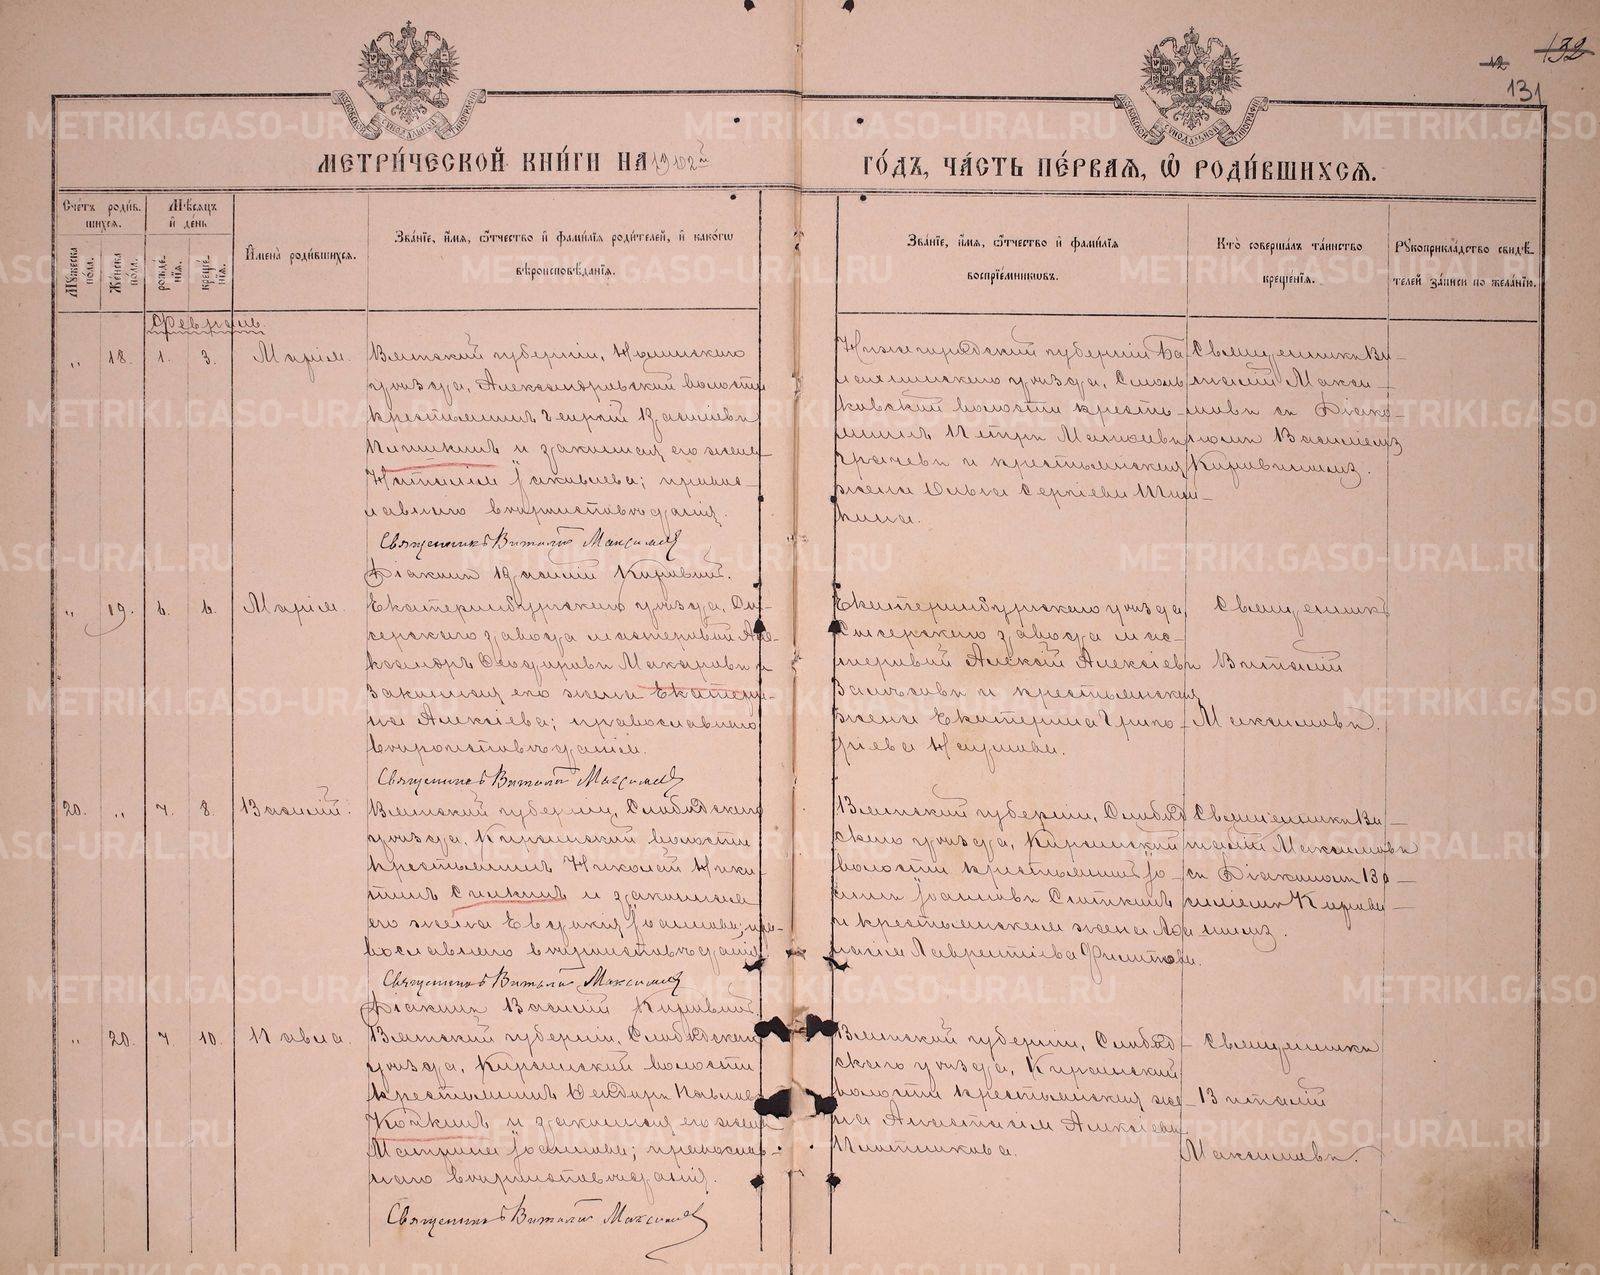 132
12
131
МЕТРИ́ЧЕСКОЙ КНИ́ГИ НА 1902й ГО́ДЪ, ЧА́СТЬ ПЕ́РВАЯ, Ѡ РОДИ́ВШИХСЯ.
Сче́тъ роди́в-
шихся.
Мѣ́сяцъ
и де́нь
Му́жеска по́ла.
Же́нска по́ла.
рожде́-
нїя.
креще́-
нїя.
Имена̀ роди́вшихся.
Зва́нїе, и́мя, ѻ́тчество и фами́лїя роди́телей, и како́гѡ
вѣроисповѣ́данїя.
Зва́нїе, и́мя, ѻ́тчество и фами́лїя
воспрїе́мниковъ.
Кто̀ соверша́лъ та́инство
креще́нїя.
Рꙋкоприкла́дство свидѣ́-
телей за́писи по жела́нїю.
Февраль.
„ 18. 1. 3. Марія.
Вятской губерніи, Нолинскаго
уѣзда, Александровской волости
крестьянинъ Георгій Васильевъ
и законная его жена
Наталія Іаковлева; право-
славнаго вѣроисповѣданія.
Священникъ Виталій Максимовъ
Діаконъ Василій
Нижегородской губерніи Ба-
лахнинскаго уѣзда, Смоль-
ковской волости кресть-
янинъ Петръ Матѳеевъ
Грачевъ и крестьянская
жена Ольга Сергіева Шиш-
кина.
Священникъ Ви-
талій Макси-
мовъ съ Діако-
номъ Василіемъ
„ 19. 6. 6. Марія.
Екатеринбургскаго уѣзда, Сы-
сертскаго завода мастеровой Але-
ксандръ Ѳеодоровъ Макаровъ и
законная его жена Екатери-
на Алексіева; православнаго
вѣроисповѣданія.
Священникъ Виталій Максимовъ
Екатеринбургскаго уѣзда,
Сысертскаго завода мас-
теровой Алексій Алексіевъ
и крестьянская
жена Екатерина Григо-
ріева Наумова.
Священникъ
Виталій
Максимовъ.
20. „ 7. 8. Василій.
Вятской губерніи, Слободскаго
уѣзда, Кирсинской волости
крестьянинъ Николай Ники-
тинъ и законная
его жена Евдокія Іоаннова; пра-
вославнаго вѣроисповѣданія.
Священникъ Виталій Максимовъ
Діаконъ Василій
Вятской губерніи, Слобод-
скаго уѣзда, Кирсинской
волости крестьянинъ Іо-
аннъ Іоанновъ
и крестьянская жена
Лаврентіева
Священникъ Ви-
талій Максимовъ
съ Діакономъ Ва-
силіемъ
„ 20. 7. 10. Павла.
Вятской губерніи, Слободскаго
уѣзда, Кирсинской волости
крестьянинъ Ѳеодоръ Павловъ
и законная его жена
Матрона Іоаннова; православ-
наго вѣроисповѣданія.
Священникъ Виталій Максимовъ
Вятской губерніи, Слобод-
скаго уѣзда, Кирсинской
волости крестьянская же-
на Анастасія Алексіева
Плотникова.
Священникъ
Виталій
Максимовъ.
METRIKI.GASO-URAL.RU